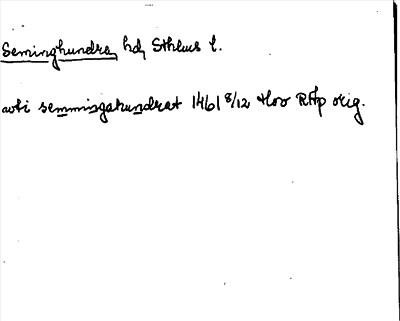 Seminghundra, hd, Sthlms l.
wti semmingahundrat 1461 8/12 Hoo RAp orig.